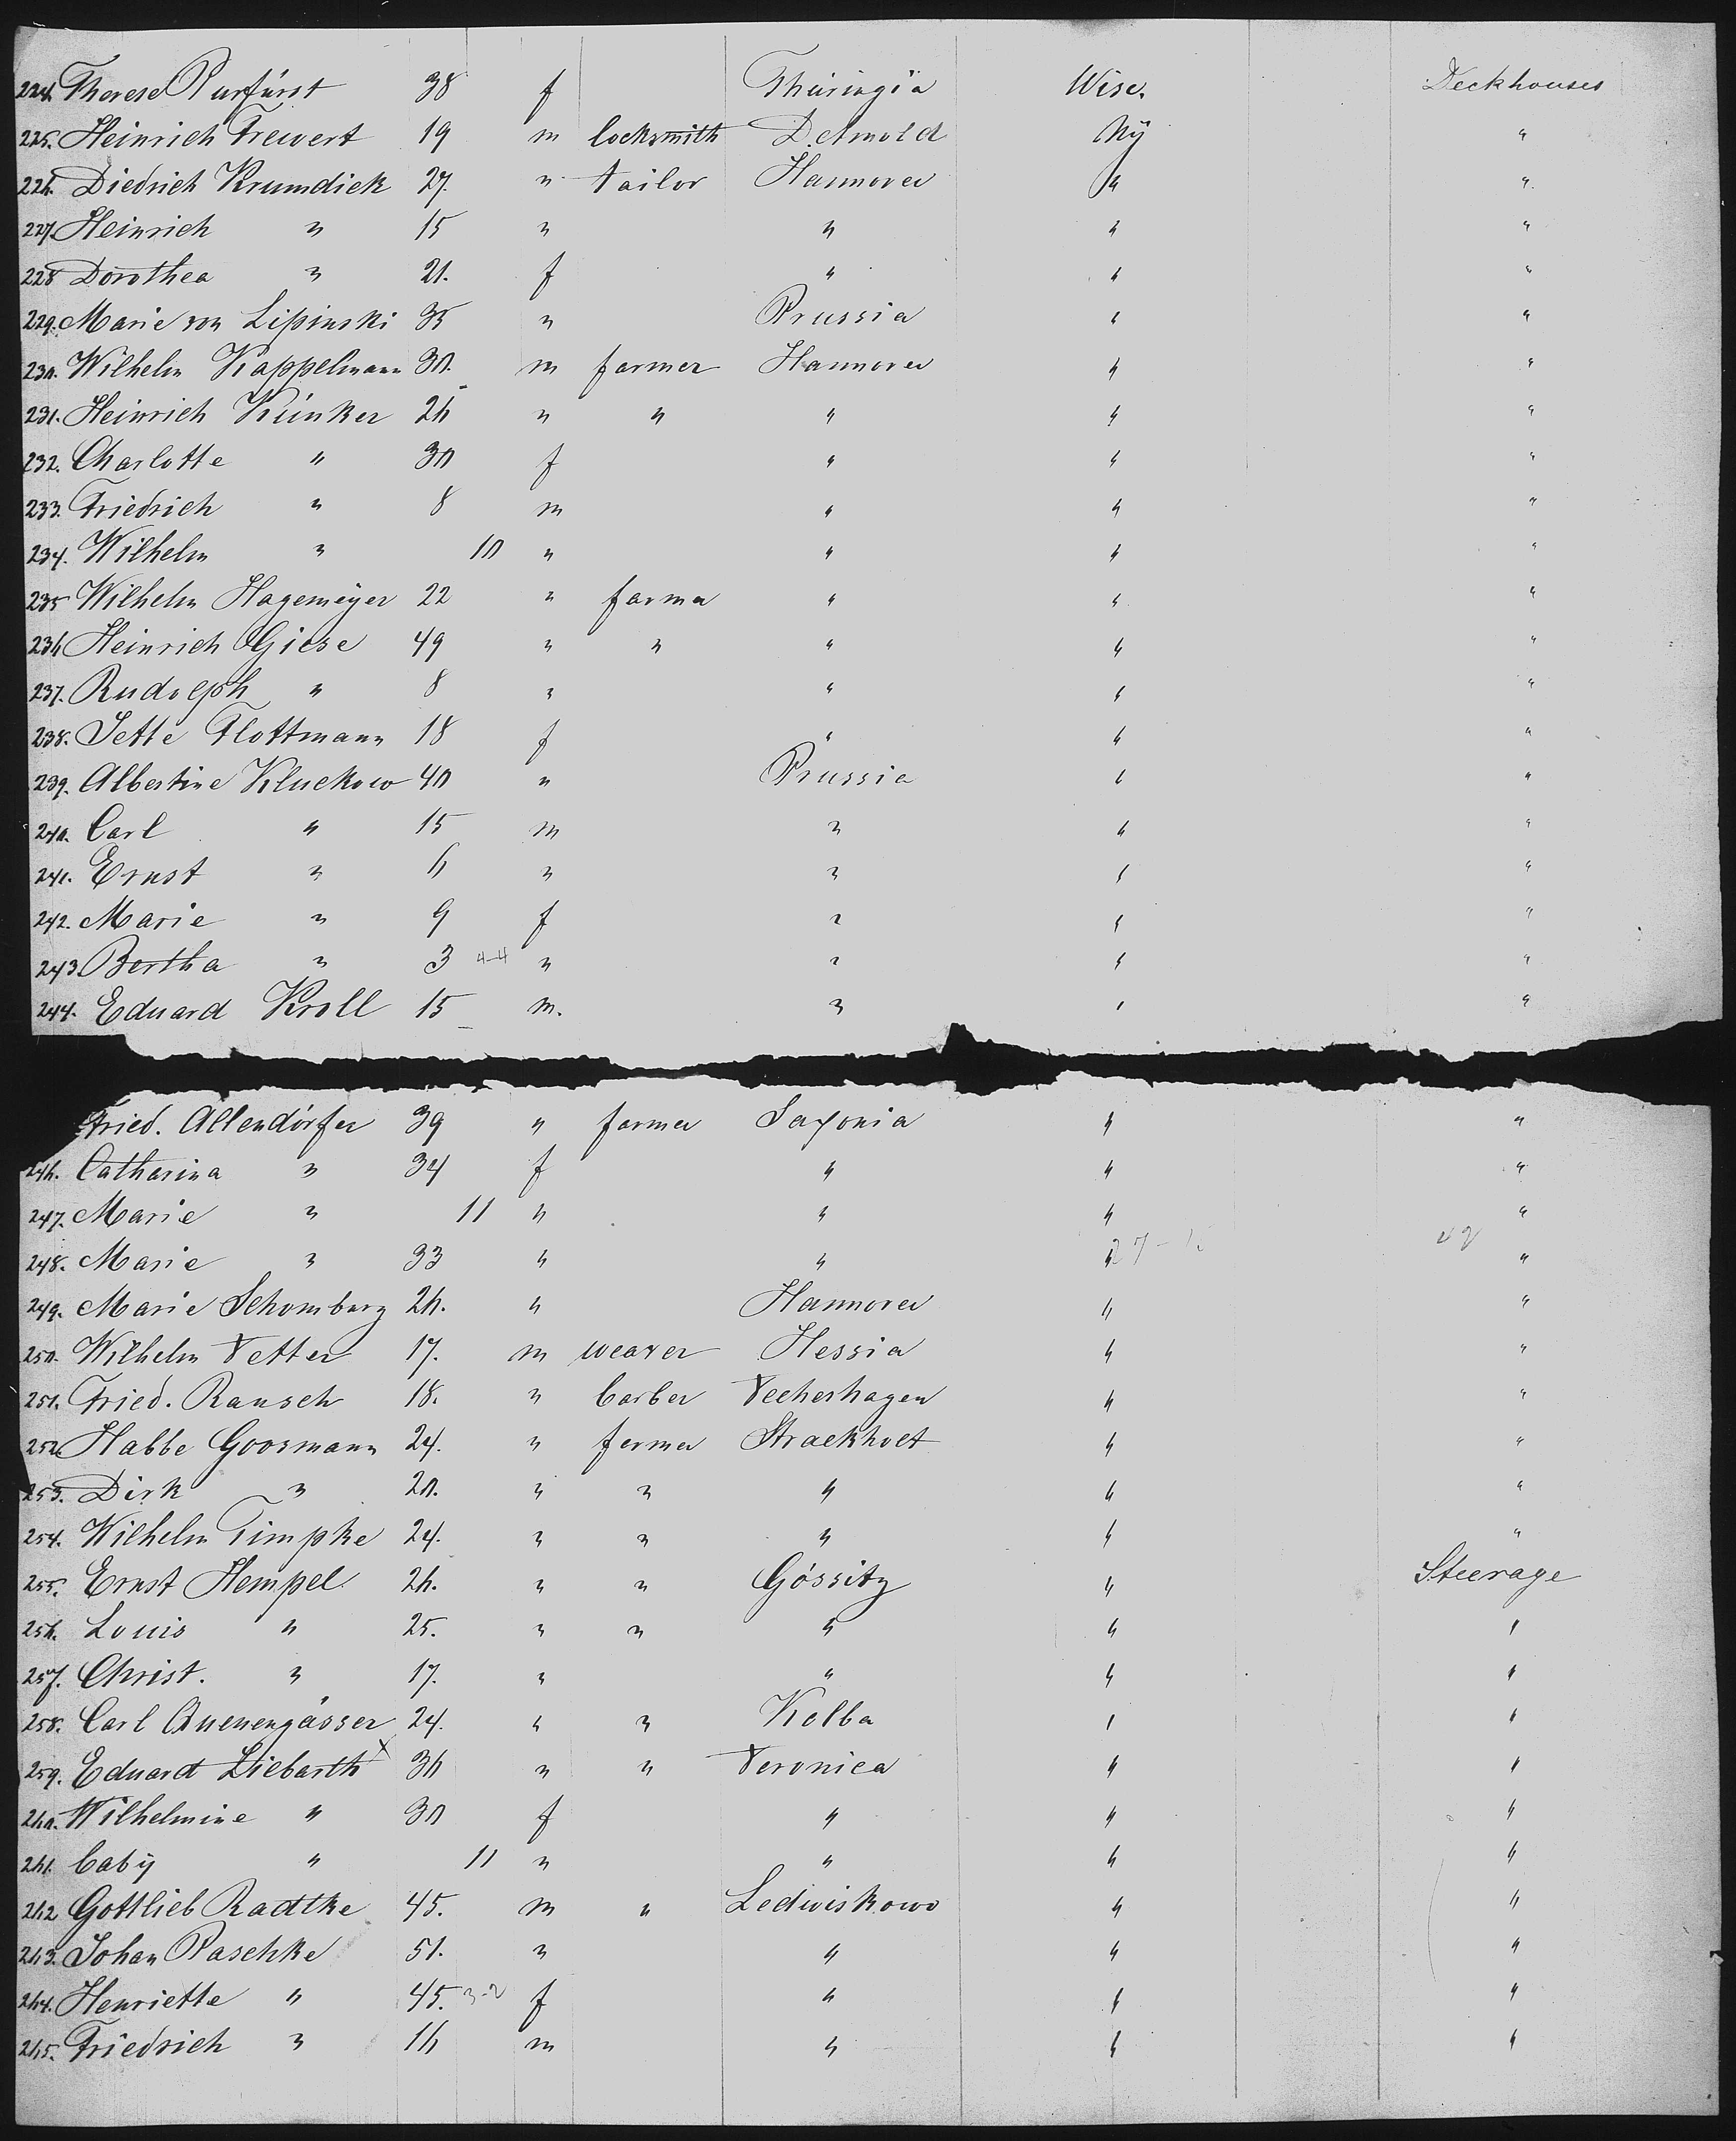 224. Therese Purfürst 38 f Thüringia Wisc. Deckhouses
225. Heinrich Frewert 19 m locksmith Detmold Ny "
226. Diedrich Krumdick 27. " tailor Hannover " "
227. Heinrich " 15 " " " "
228 Dorothea " 21. f " " "
229. Marie von Lipinski 35 " Prussia " "
230. Wilhelm Kappelmann 30. m farmer Hannover " "
231. Heinrich Künker 26 " " " " "
232. Charlotte " 30 f " " "
233. Friedrich " 8 m " " "
234. Wilhelm " 10 " " " "
235 Wilhelm Hagemeyer 22 " farmer " " "
236 Heinrich Giese 49 " " " " "
237. Rudolph " 8 " " " "
238. Jette Flottmann 18 f " " "
239. Albertine Kluckow 40 " Prussia " "
240. Carl " 15 m " " "
241. Ernst " 6 " " " "
242. Marie " 9 f " " "
243. Bertha " 3 4-4 " " " "
244. Eduard Kroll 15 m. " " "
Fried. Allendörfer 39 " farmer Saxonia " "
246. Catharina " 34 f " " "
247. Marie " 11 " " " "
248. Marie " 33 " " " "
249. Marie Schomburg 26. " Hannover " "
250. Wilhelm Vetter 17. m weaver Hessia " "
251. Fried. Rausch 18. " barber Veckerhagen " "
252. Habbe Goosmann 24. " farmer Strackholt " "
253. Dirk " 20. " " " " "
254. Wilhelm Timpke 24. " " " " "
255. Ernst Hempel 26. " " Gössitz " Steerage
256. Louis " 25. " " " " "
257. Christ. " 17. " " " "
258. Carl Quenengässer 24. " " Kolba " "
259. Eduard Liebarth x 36 " " Veronica " "
260. Wilhelmine " 30 f " " "
261. baby " 11 " " " "
262 Gottlieb Radtke 45. m " Ledwiskowo " "
263. Johan Paschke 51. " " " "
264. Henriette " 45. 3-2 f " " "
265. Friedrich " 16 m " " "